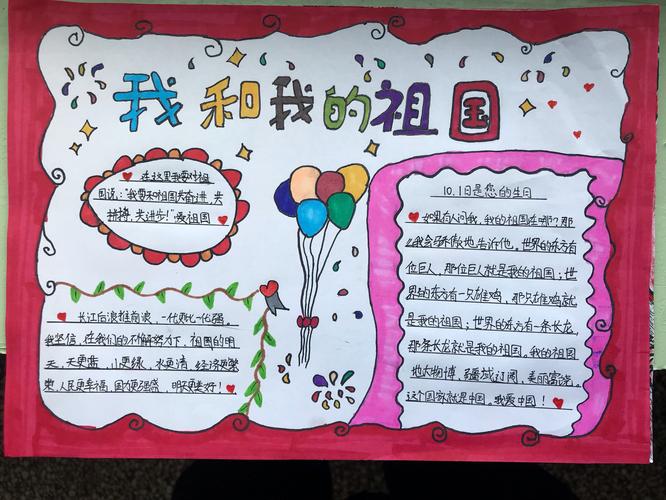 我和我的祖国
在这里我要对祖
国说："我要和祖国共奋进，共
拼搏，共进步！"爱祖国
长江后浪推前浪，一代更比一代强。
我坚信，在我们的不懈努力下，祖国的明
天，天更蓝，山更绿，水更清，经济更繁
荣，人民更幸福，国力更强盛，明天更美好！
10.1日是您的生日
如果有人问我，我的祖国在哪？那
么我会骄傲地告诉他，世界的东方有
位巨人，那位巨人就是我的祖国；世
界的东方有一只雄鸡，那只雄鸡就
是我的祖国；世界的东方有一条长龙，
那条长龙就是我的祖国。我的祖国
地大物博，疆域辽阔，美丽富饶，
这个国家就是中国。我爱中国！